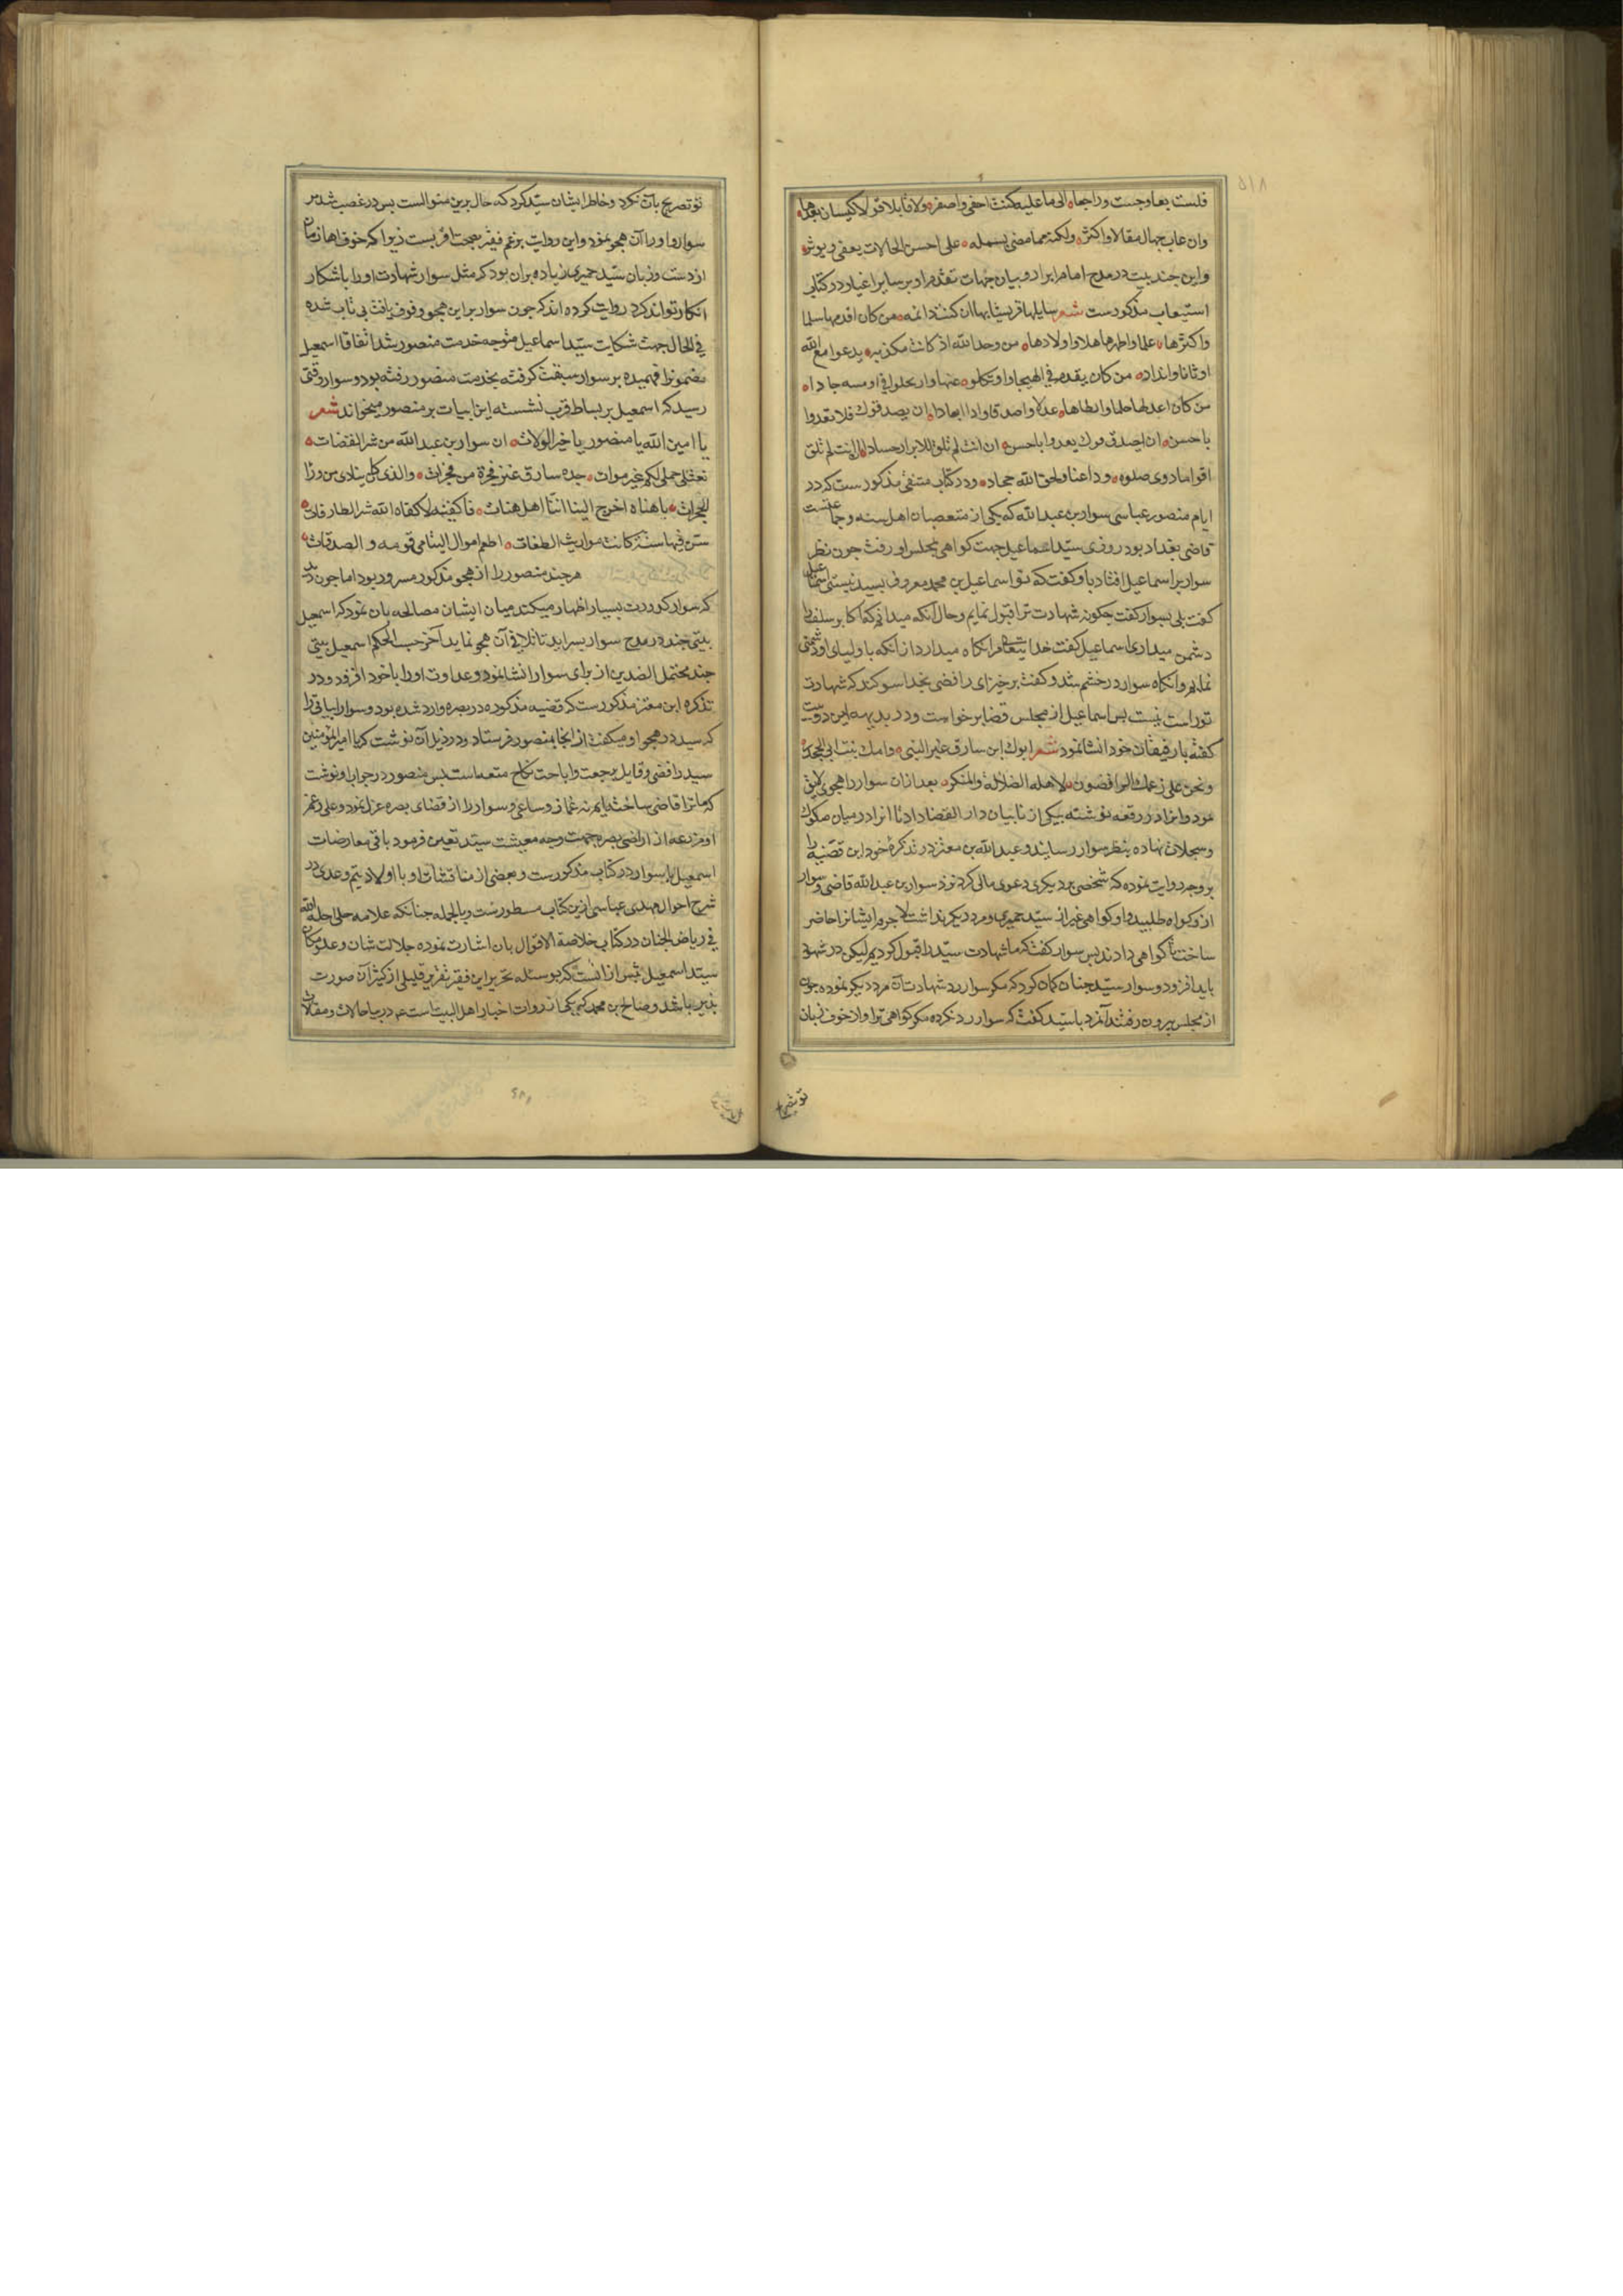 ۵۱۸
فلست بها وجست وراجعا الی ما علیه کنت اخفی واصفر ولا قابلا قولا کیسان بعدها
وان عاب جهال مقالا واکثر ولکنه مما مضی بسبیله علی احسن الحالات یعفی ویوثر
واین چند بیت در مدح امام ابرار وبیان جهات تقدم او بر سایر اغیار در کتاب
استیعاب مذکورست شعر سایلها قریشا بها ان کنت ذا نمه من کان اقدمها سلما
واکثرها علما واطهرها اهلا واولادها من وحد الله اذ کانت مکذبه یدعوا مع الله
اوثانا واندادا من کان یقدم فی الهیجا وان نکلوا عنها وان یبخلوا فی ازمه جادا
من کان اعدلها حلما وابسطها عدلا واصدقا وادا ابعادا ان یصدقوك فلا تعدوا
یا حسن ان یصدقوك یعدوا باحسن ان انت لم تلق للابرار حسادا ان انت لم تلق
اقواما ذوی صلوه وذا عنا ولحق الله جحاد ودر کتاب متنقی مذکورست که در
ایام منصور عباسی سوار بن عبد الله که یکی از متعصبان اهل سنه وجماعتست
قاضی بغداد بود روزی سید اسماعیل جهت کواهی بمجلس او رفت چون نظر
سوار بر اسماعیل افتاد باو کفت که تو اسماعیل بن محمد معروف بسید نیستی اسماعیل
کفت بلی سوار کفت چکونه شهادت ترا قبول نمایم وحال آنکه میدانم که اکابر سلف را
دشمن میداری اسماعیل کفت خدایتعالی مرا نکاه میدارد از آنکه با اولیای او دشمنی
نمایم وآنکاه سوار در خشم شد وکفت برخیز ای رافضی بخدا سوکند که شهادت
تو راست نیست پس اسماعیل از مجلس قضا برخواست ودر بدیهه این دو بیت
کفته با رفیقان خود انشا نمود شعر ابوك ابن سارق عنز النبی وامك بنت ابی الجحدر
ونحن علی زعمك الرافضون لاهل الضلالة والمنکر بعد از آن سوار را هجوی لایق
نمود وآنرا در رقعه نوشته بیکی از نایبان دار القضا داد تا آنرا در میان صکوك
وسجلات نهاده بنظر سوار رساند وعبد الله بن معتز در تذکرهٔ خود این قضیه را
بر وجه روایت نموده که شخصی بر دیکری دعوی مالی کرد نزد سوار بن عبد الله قاضی وسوار
از وکواه طلبید واو کواهی غیر از سید حمیری ومرد دیکر نداشت لا جرم ایشانرا حاضر
ساخت تا کواهی دادند پس سوار کفت که ما شهادت سید را قبول کردیم لیکن در شهود
باید افزود وسوار سید چنان کمان کرد که مکر سوار رد شهادت آن مرد دیکر نموده چون
از مجلس بیرون رفتند آنمرد با سید کفت که سوار رد نکرده مکر کواهی ترا واز خوف زبان
تو تصریح
تو تصریح بآن نکرد وخاطر ایشان سید کرد که حال برین منوالست پس در غضب شد بر
سوار واو را آن هجو نمود واین روایت بزعم فقیر بصحت اقربست زیرا که خوف اهل زمان
از دست وزبان سید حمیری زیاده بران بود که مثل سوار شهادت او را باشکار
انکار تواند کرد روایت کرده اند که چون سوار بر این هجو وقوف یافت بی تاب شده
فی الحال جهت شکایت سید اسماعیل متوجه خدمت منصور شد اتفاقا اسمعیل
مضمونرا فهمیده بر سوار سبقت کرفته بخدمت منصور رفته بود وسوار وقتی
رسید که اسمعیل بر بساط قرب نشسته این ابیات بر منصور میخواند شعر
یا امین الله یا منصور یا خیر الولات ان سوار بن عبد الله من شر القضات
نعثلی جملی لکم غیر موات جده سارق عنز فجرة من فجرات والذی کان ینادی من ورا
الحجرات یا هناه اخرج الینا اننا اهل هنات فاکفنیه لا کفاه الله شر الطارقات
سن فینا سننا کانت مواریث الطغات اطعم اموال الیتامی قومه والصدقات
هرچند منصور را از هجو مذکور مسرور بود اما چون دید
که سوار کدورت بسیار اظهار میکند میان ایشان مصالحه بان نمود که اسمعیل
بیتی چند در مدح سوار بسراید تا تلافی آن هجو نماید آخر حسب الحکم اسمعیل بیتی
چند محتمل الضدین از برای سوار انشا نمود وعداوت او را با خود افزود ودر
تذکره ابن معتز مذکورست که قضیه مذکوره در بصره وارد شده بود وسوار ابیاتی را
که سید در هجو او میکفت از آنجا بمنصور فرستاد ودر ذیل آن نوشت که یا امیر المؤمنین
سید رافضی وقایل برجعت واباحت نکاح متعه است پس منصور در جواب او نوشت
که ما ترا قاضی ساخته ایم نه غماز وساعی وسوار را از قضای بصره عزل نمود وعلی رغم
او مزرعه از اراضی بصره جهت وجه معیشت سید تعیین فرمود باقی معارضات
اسمعیل با سوار در کتاب مذکورست وبعضی از مناقشات او با اولاد تیم وعدی در
شرح احوال مهدی عباسی ازین کتاب مسطورست وبالجمله چنانکه علامه حلی احله الله
فی ریاض الجنان در کتاب خلاصة الاقوال بان اشارت نموده جلالت شان وعلو مکان
سید اسمعیل بیش از آنست که بوسیله تحریر این فقیر نقیر قلیلی از کثیر آن صورت
پذیر باشد وصالح بن محمد که یکی از روات اخبار اهل البیت است علیهم در بیان حالات ومقالات